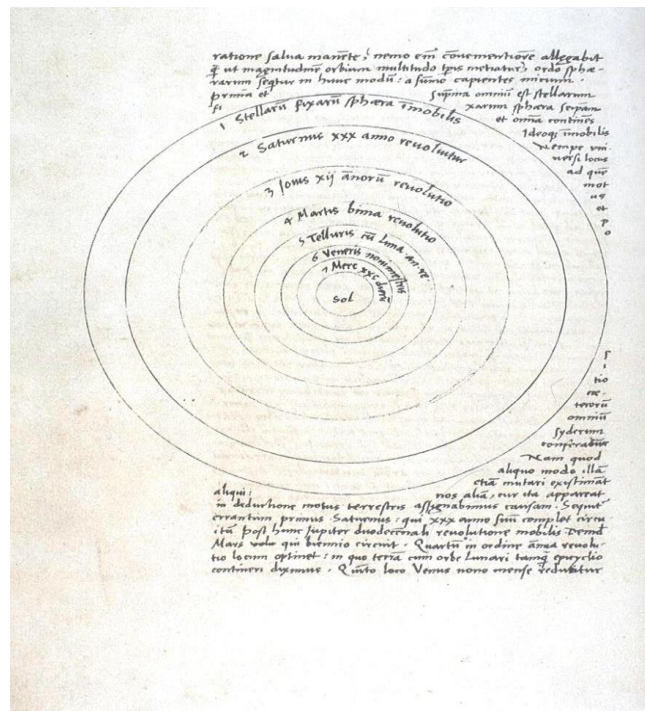 ratione salua manēte, nemo em̄ cōuenientiorē allegabit
q̃ ut magnitudinē orbium multitudo tp̄is metiatur, ordo sphæ-
rarum sequitur in hunc modū: a sūmo capientes inicium.
prima et suprema omniū est stellarum
fixarum sphæra seipsam
et omīa continēs
Ideoq; īmobilis
nempe vni
uersi locus
ad quē
mot
us
et
p
o
1 Stellarū fixarū sphæra īmobilis
2 Saturnus xxx anno reuoluitur
3 Iouis xij annorū reuolutio
4 Martis bima reuolutio
5 Telluris cū Luna an. re.
6 Veneris nonimestris
7 Merc xxc dierū
Sol
s
i
tio
cæ-
terorū
omniū
syderum
conferatur
Nam quod
aliquo modo illā
etiā mutari existimāt
aliqui: nos aliā, cur ita appareat
in deductione motus terrestris assignabimus causam. Sequit̄
errantium primus Saturnus: qui xxx anno suū complet circu
itū post hunc Iupiter duodecēnali reuolutione mobilis Deind̄
Mars volo qui biennio circuit. Quartū in ordine āñua reuolu-
tio locum optinet: in quo terrā cum orbe Lunari tanq̄ epicyclio
contineri diximus. Quīto loco Venus nono mense reducitur